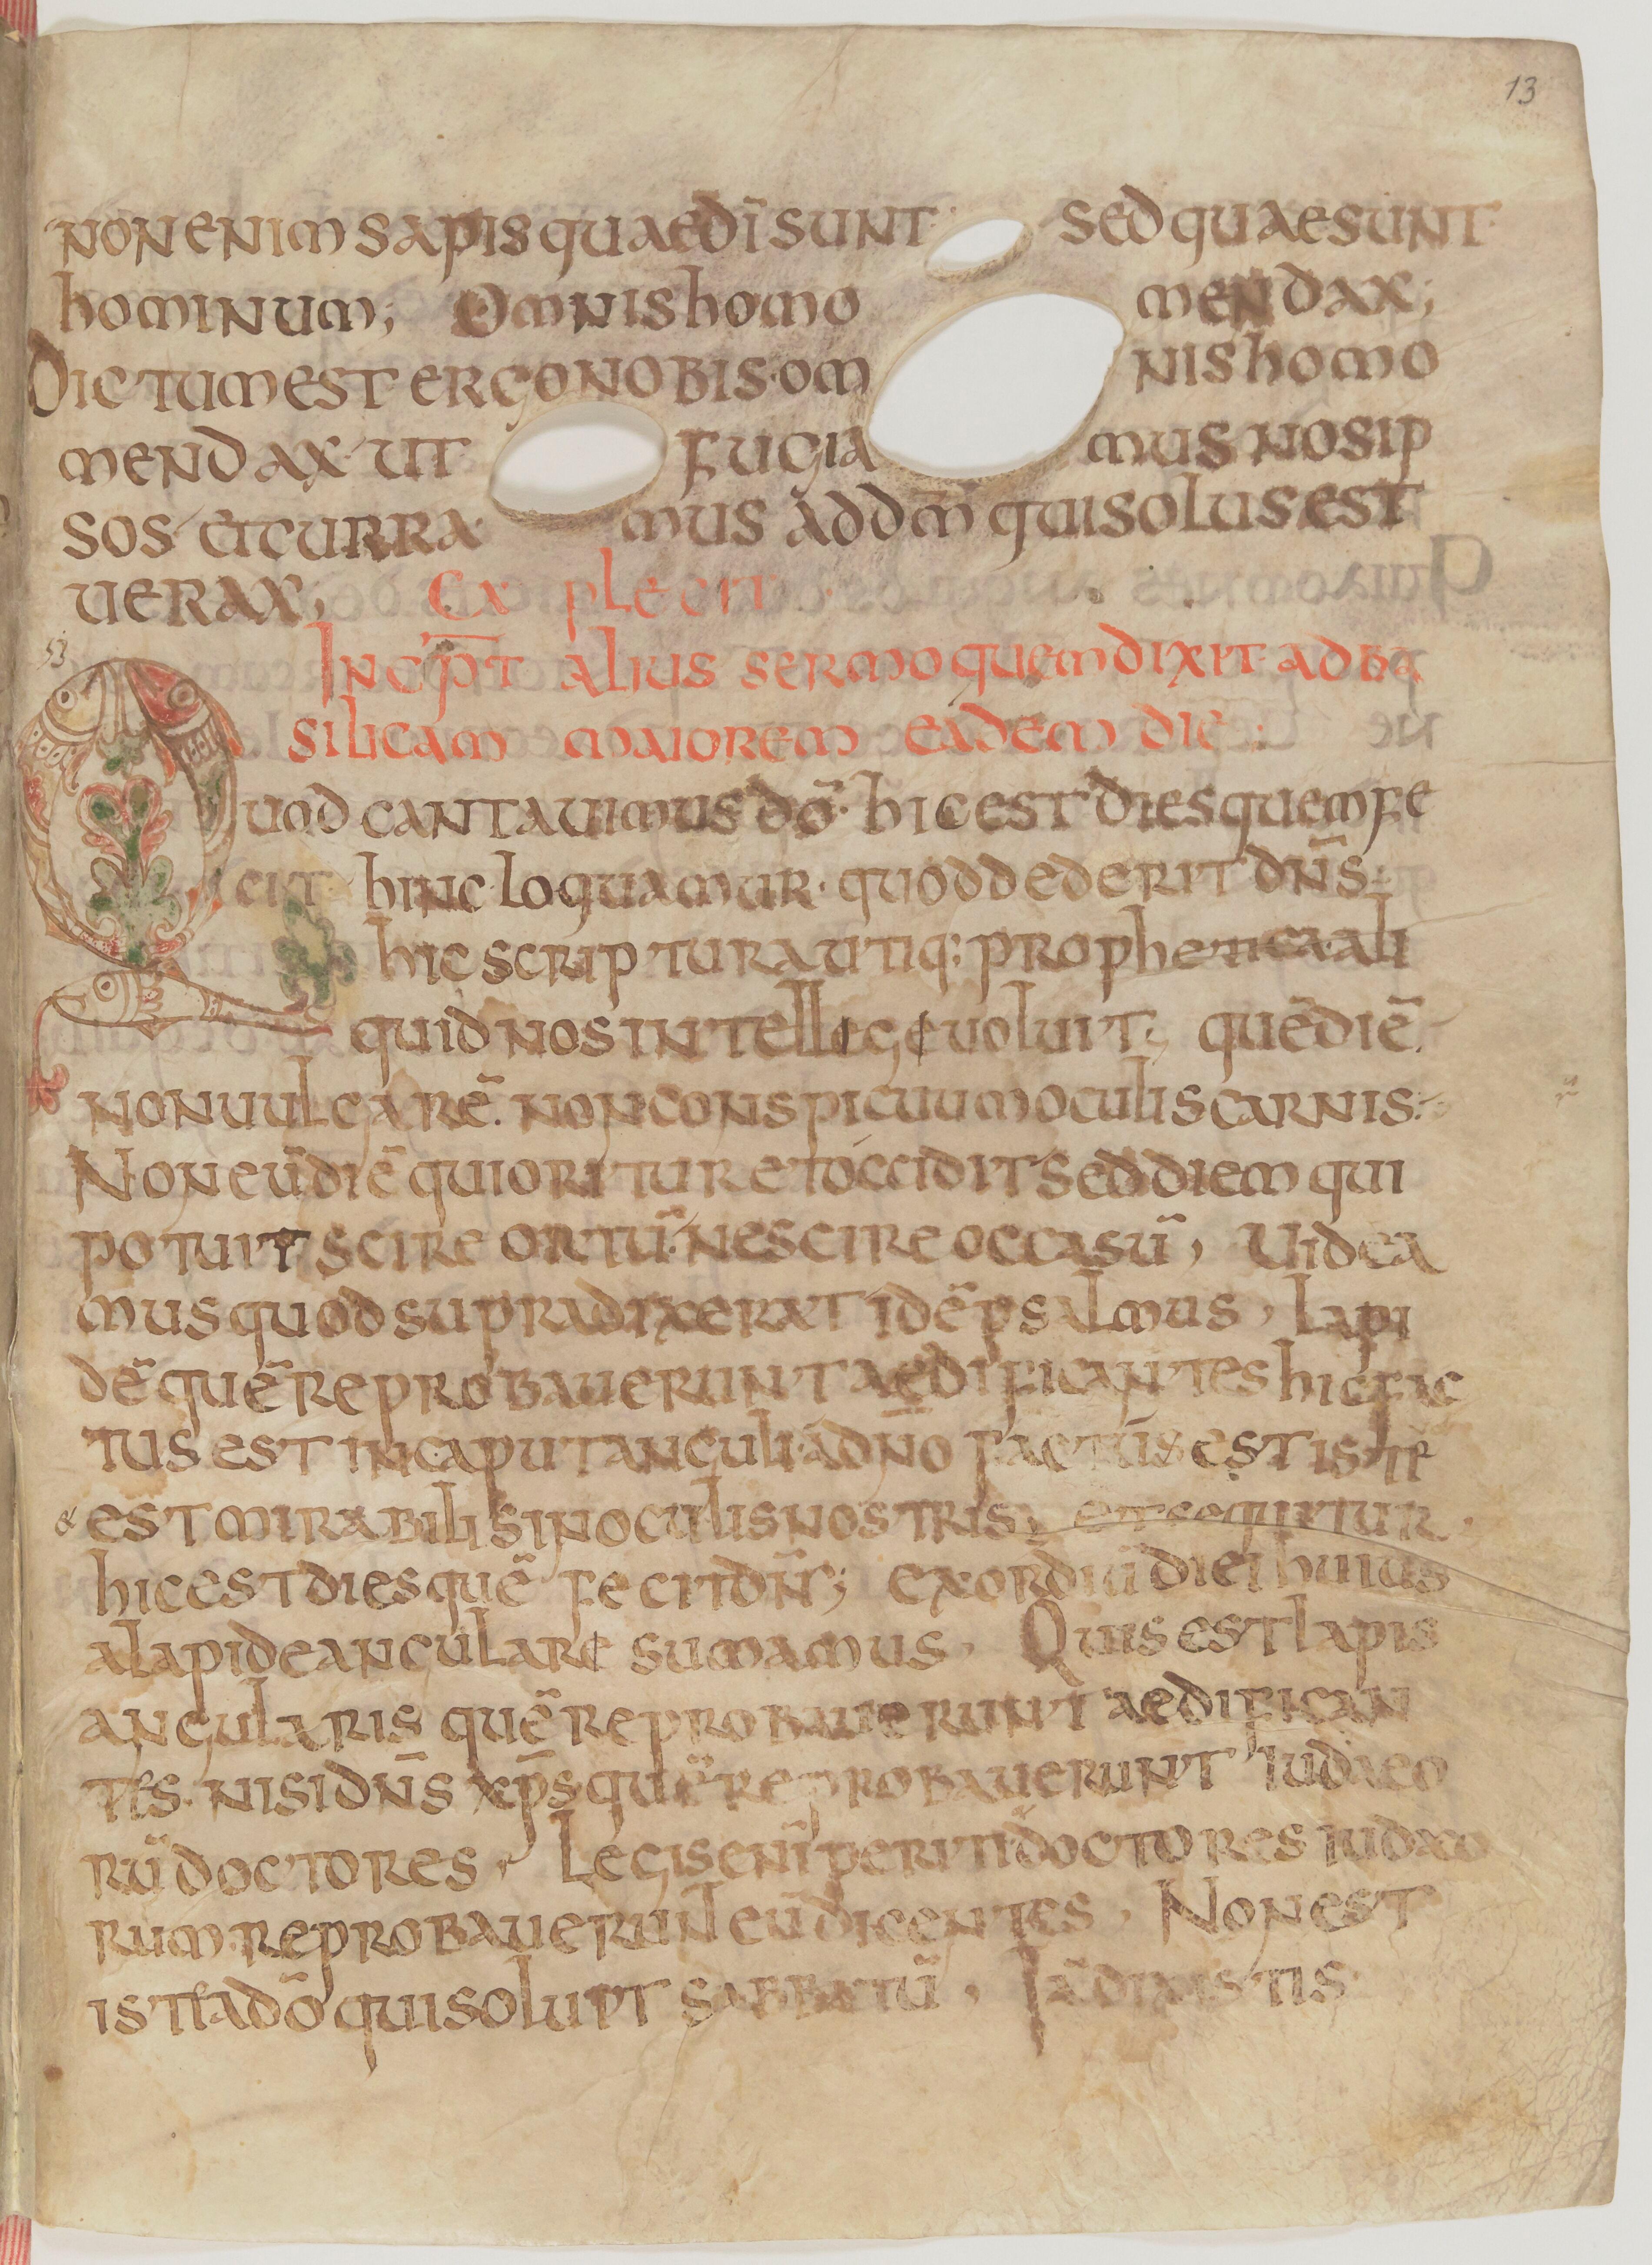 13
non enim sapis quae dī sunt · sed quae sunt
hominum; Omnis homo mendax;
Dictum est ergo nobis · omnis homo
mendax · ut fugiamus nos ip
sos · et curramus ad dm̄ qui solus est
uerax; Explecit
Incp̄t alius sermo quem dixit ad ba
silicam maiorem eadem die ·
Quod cantauimus dō · hic est dies quem fe
cit hinc loquamur · quod dederit dn̄s ·
hic scriptura utiq; prophetica · ali
quid nos intellege uoluit; quē diē
non uulgarē · non conspicuum oculis carnis ·
Non eū diē qui oritur et occidit sed diem qui
potuit scire ortū · nescire occasū, Uidea
mus quod supra dixerat idē psalmus, lapi
dē quē reprobauerunt aedificantes hic fac
tus est in caput anguli · a dn̄o factus est iste
& est mirabilis in oculis nostris; et sequitur ·
hic est dies quē fecit dn̄s; exordiū diei huius
a lapide angulare sumamus, Quis est lapis
angularis quē reprobauerunt aedifican
tes · nisi dn̄s xp̄s quē reprobauerunt iudaeo
rū doctores, Legis enī periti doctores iudaeo
rum · reprobauerunt eū dicentes, Non est
iste a dō qui soluit sabbatū, Iā dixistis